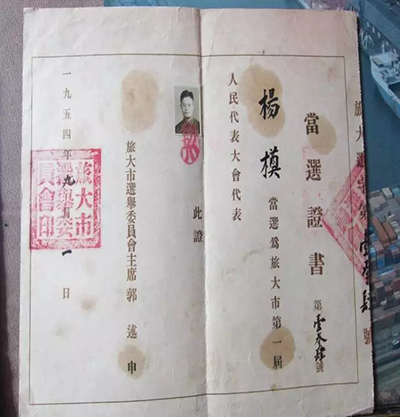 旅大選 肆號
當選證書
第壹肆號
楊模 當選爲旅大市第一屆
人民代表大會代表
此證
旅大市選舉委員會主席 郭述申
一九五四年九月一日
旅大市
選舉委
員會印